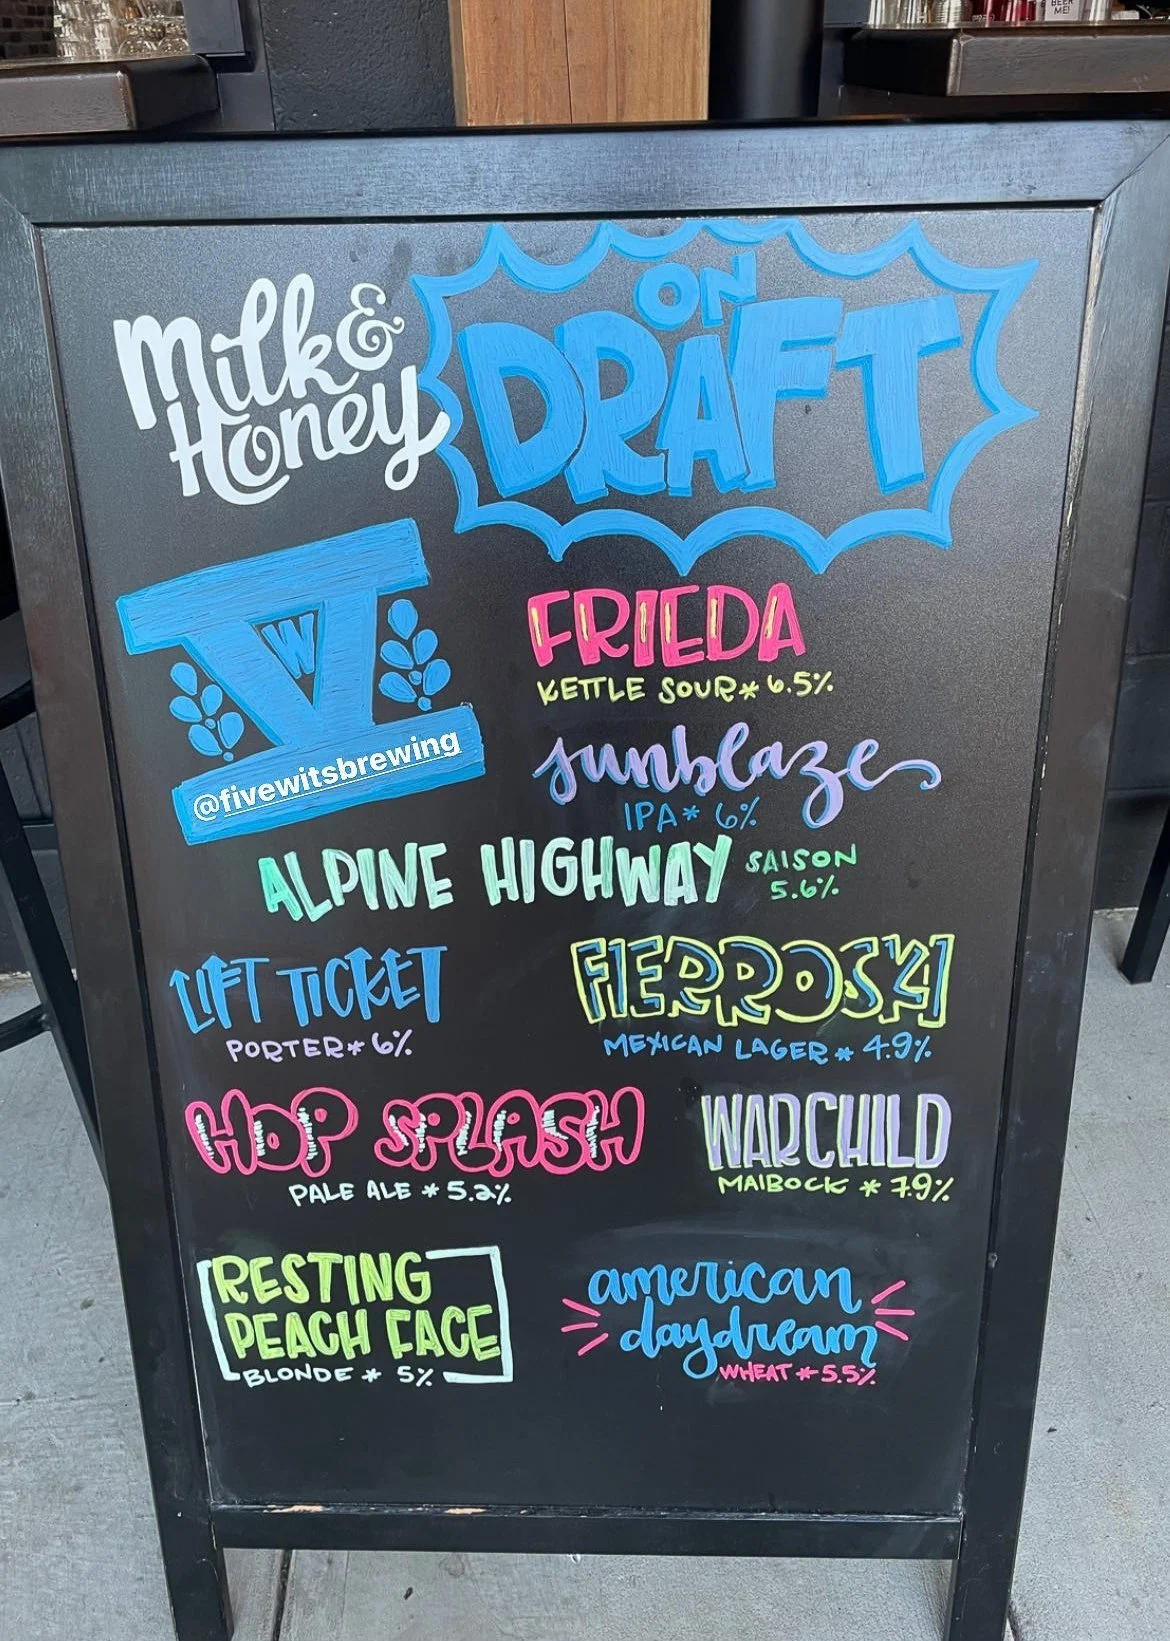 BEER
ME!
Milk &
Honey
ON
DRAFT
V
W
@fivewitsbrewing
FRIEDA
KETTLE SOUR * 6.5%
sunblaze
IPA * 6%
ALPINE HIGHWAY SAISON
5.6%
LIFT TICKET
PORTER * 6%
FIERROSKI
MEXICAN LAGER * 4.9%
HOP SPLASH
PALE ALE * 5.2%
WARCHILD
MAIBOCK * 7.9%
RESTING
PEACH FACE
BLONDE * 5%
american
daydream
WHEAT * 5.5%